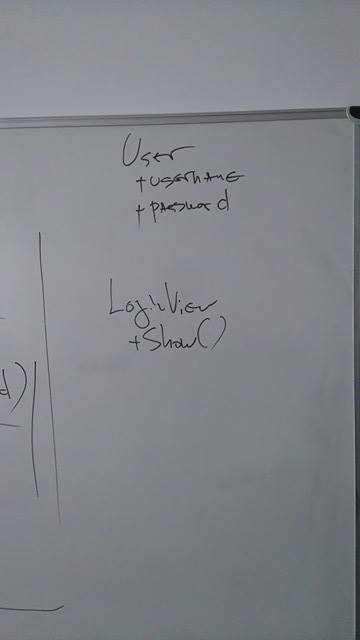 User
+username
+password
LoginView
+Show()
d)